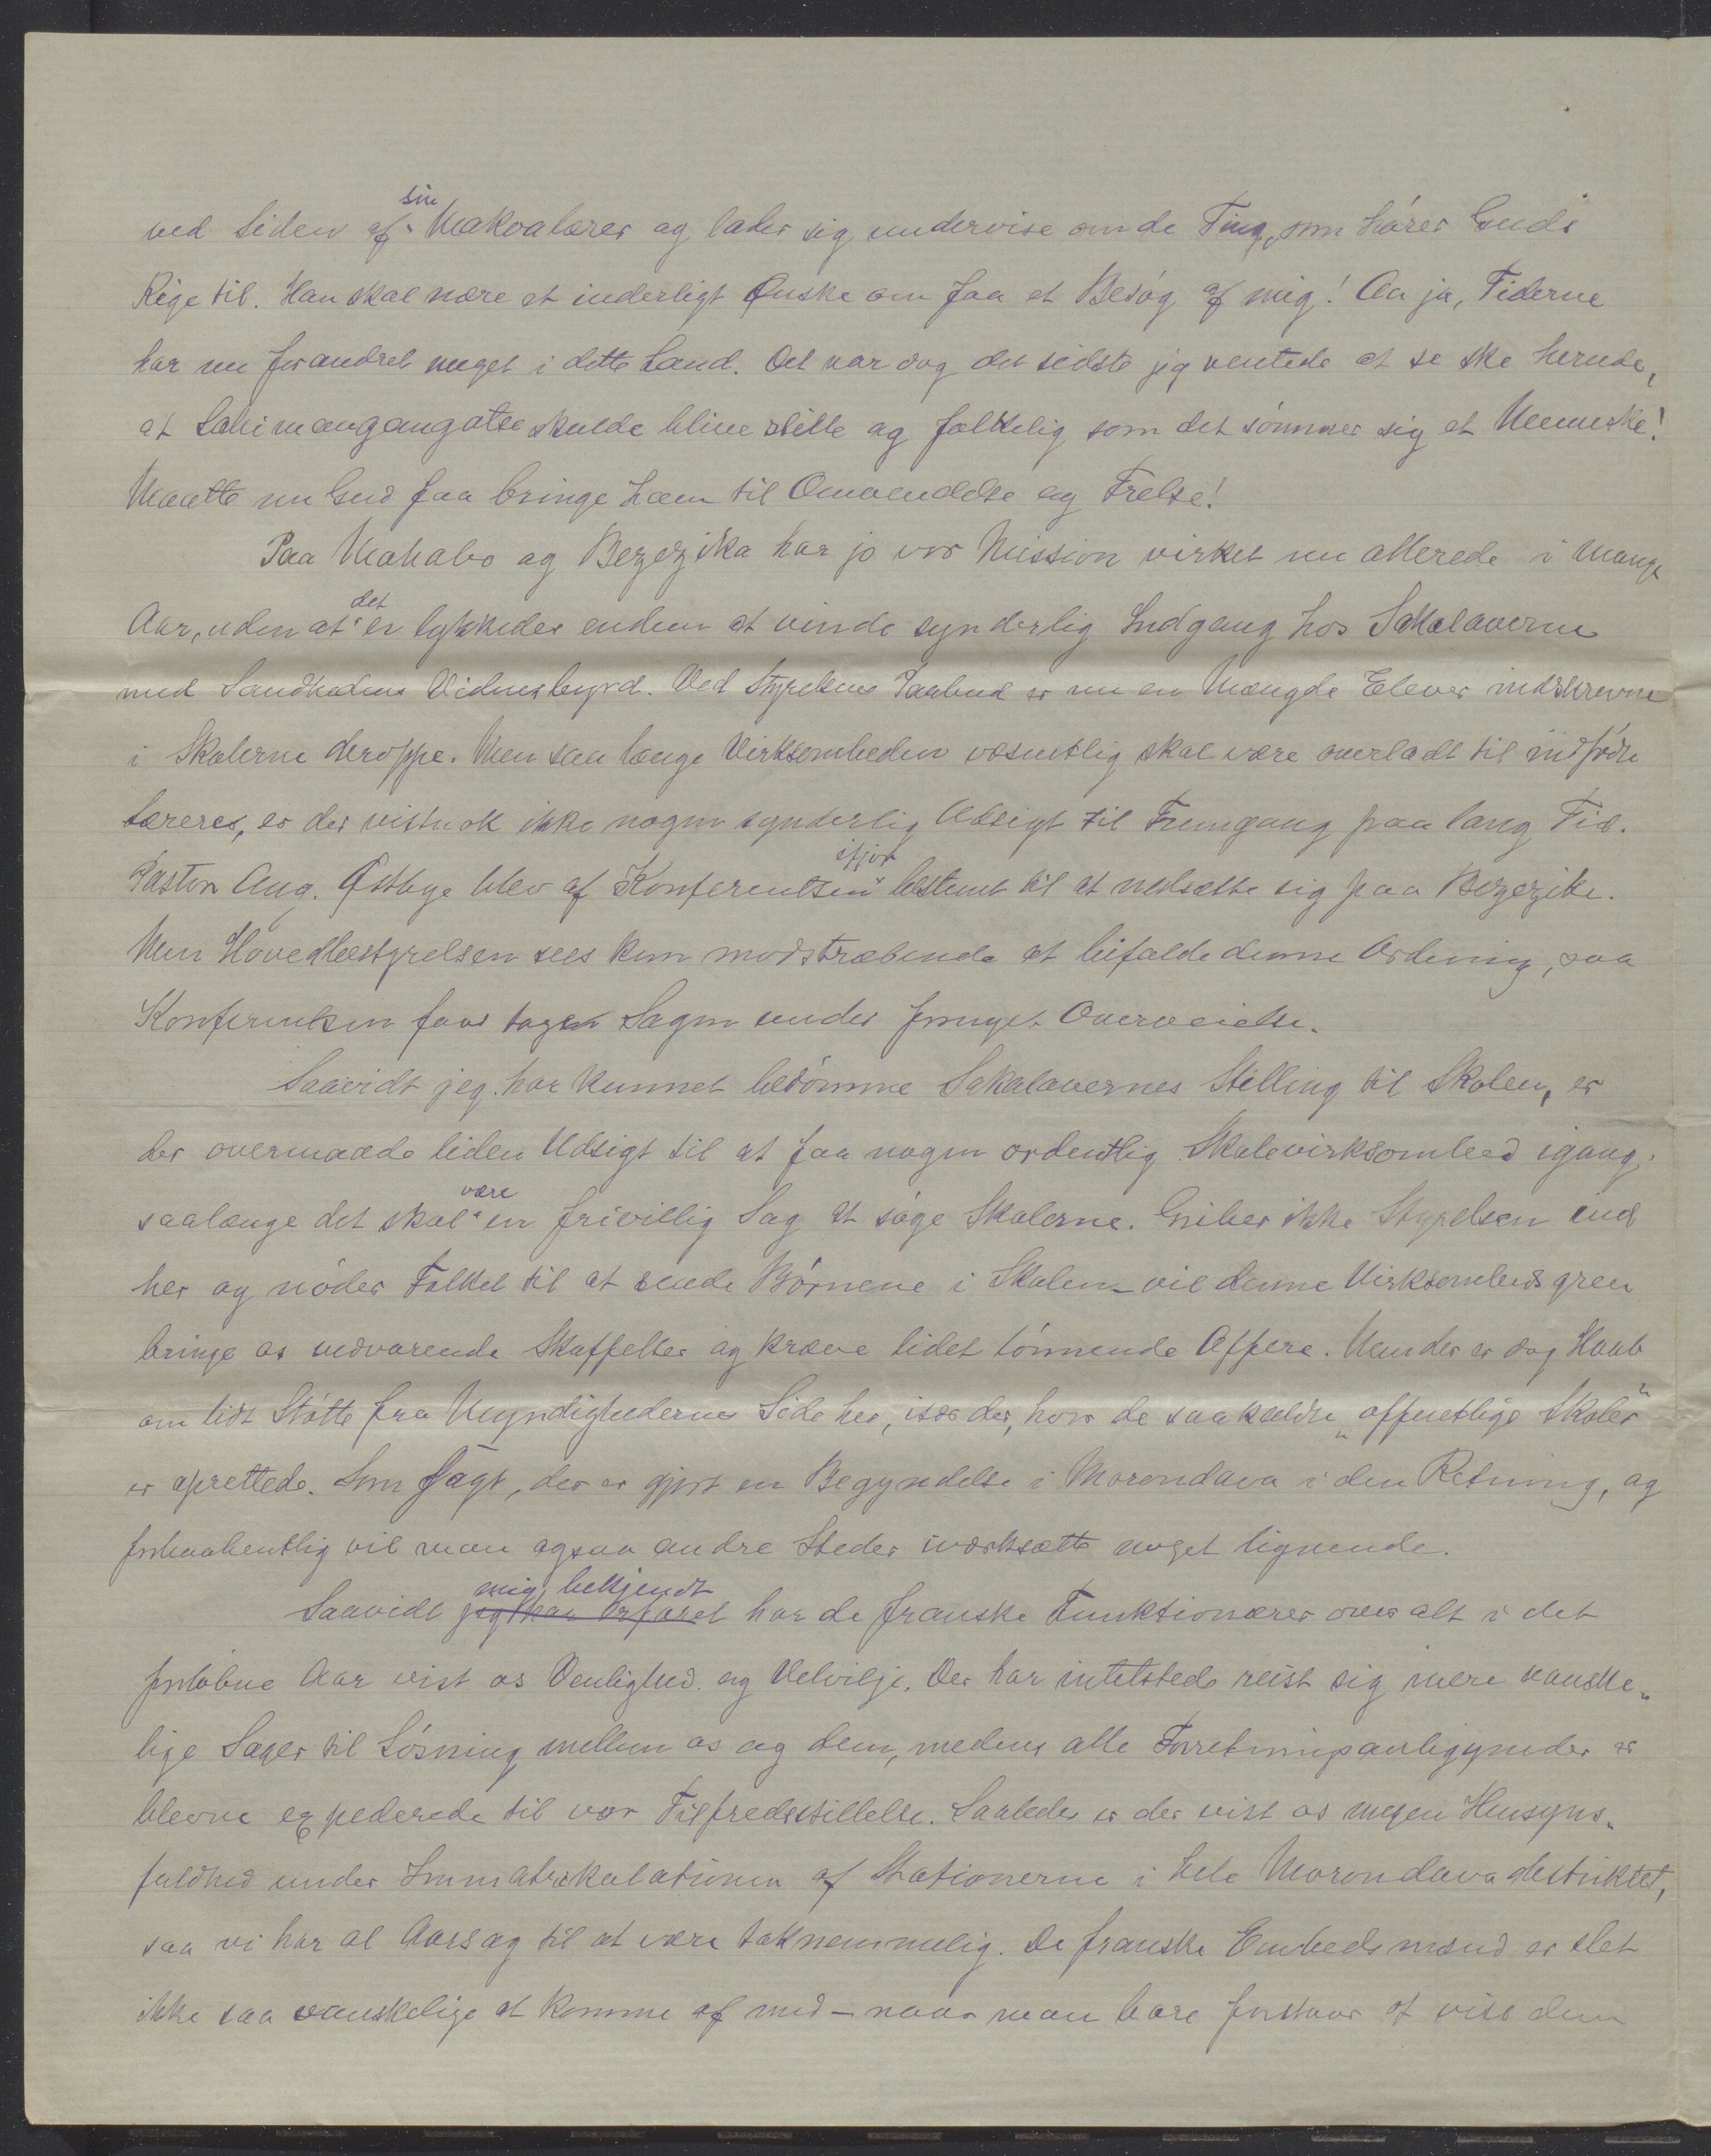 ved Siden af sin Makoalærer og lader sig undervise om de Ting, som hører Guds
Rige til. Han skal nære et inderligt Ønske om faa et Besøg af mig! Aa ja, Tiderne
har nu forandret meget i dette Land. Det var dog det sidste jeg ventede at se ske herude,
at Lahimangangatse skulde blive stille og folkelig som det sømmer sig et Menneske!
Maatte nu Gud faa bringe ham til Omvendelse og Frelse!
Paa Mahabo og Bezezika har jo vor Mission virket nu allerede i mange
Aar, uden at det er lykkedes endnu at vinde synderlig Indgang hos Sakalaverne
med Sandhedens Vidnesbyrd. Ved Styrelsens Paabud er nu en Mængde Elever indskrevne
i Skolerne deroppe. Men saa længe Virksomheden væsentlig skal være overladt til indfødte
lærere, er der vistnok ikke nogen synderlig Udsigt til Fremgang paa lang Tid.
Pastor Aug. Østbye blev af Konferentsen ifjor bestemt til at nedsætte sig paa Bezezika.
Men Hovedbestyrelsen sees kun modstræbende at bifalde denne Ordning, saa
Konferentsen faar tage Sagen under fornyet Overveielse.
Saavidt jeg har kunnet bedømme Sakalavernes Stilling til Skolen, er
der overmaade liden Udsigt til at faa nogen ordentlig Skolevirksomhed igang,
saalænge det skal være en frivillig Sag at søge Skolerne. Griber ikke Styrelsen ind
her og nøder Folket til at sende Børnene i Skolen – vil denne Virksomhedsgren
bringe os vedvarende Skuffelser og kræve lidet lønnende Offere. Men der er dog Haab
om lidt Støtte fra Myndighedernes Side her, især der, hvor de saakaldte „offentlige Skoler"
er oprettede. Som sagt, der er gjort en Begyndelse i Morondava i den Retning, og
forhaabentlig vil man ogsaa andre Steder iværksætte noget lignende.
Saavidt jeg har erfaret mig bekjendt har de franske Funktionærer overalt i det
forløbne Aar vist os Venlighed og Velvilje. Der har intetsteds reist sig mere vanske-
lige Sager til Løsning mellem os og dem, medens alle Forretningsanliggender er
blevne expederede til vor Tilfredsstillelse. Saaledes er der vist os megen Hensyns-
fuldhed under Immatrikulationen af Stationerne i hele Morondavadistriktet,
saa vi har al Aarsag til at være taknemmelig. De franske Embedsmænd er slet
ikke saa vanskelige at komme af med – naar man bare forstaar at vise dem